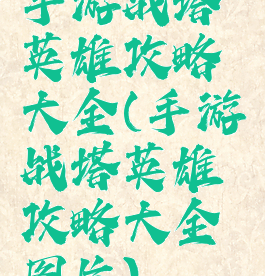 手游战塔
英雄攻略
大全(手游
战塔英雄
攻略大全
图片)